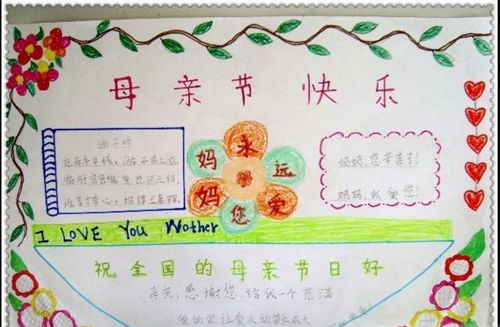 母亲节快乐
游子吟
慈母手中线，游子身上衣
临行密密缝，意恐迟迟归
妈妈永远爱您
妈妈，您辛苦了！
妈妈，我爱您！
I LOVE You Mother
祝全国的母亲节日好
母亲，感谢您，给我一个充满